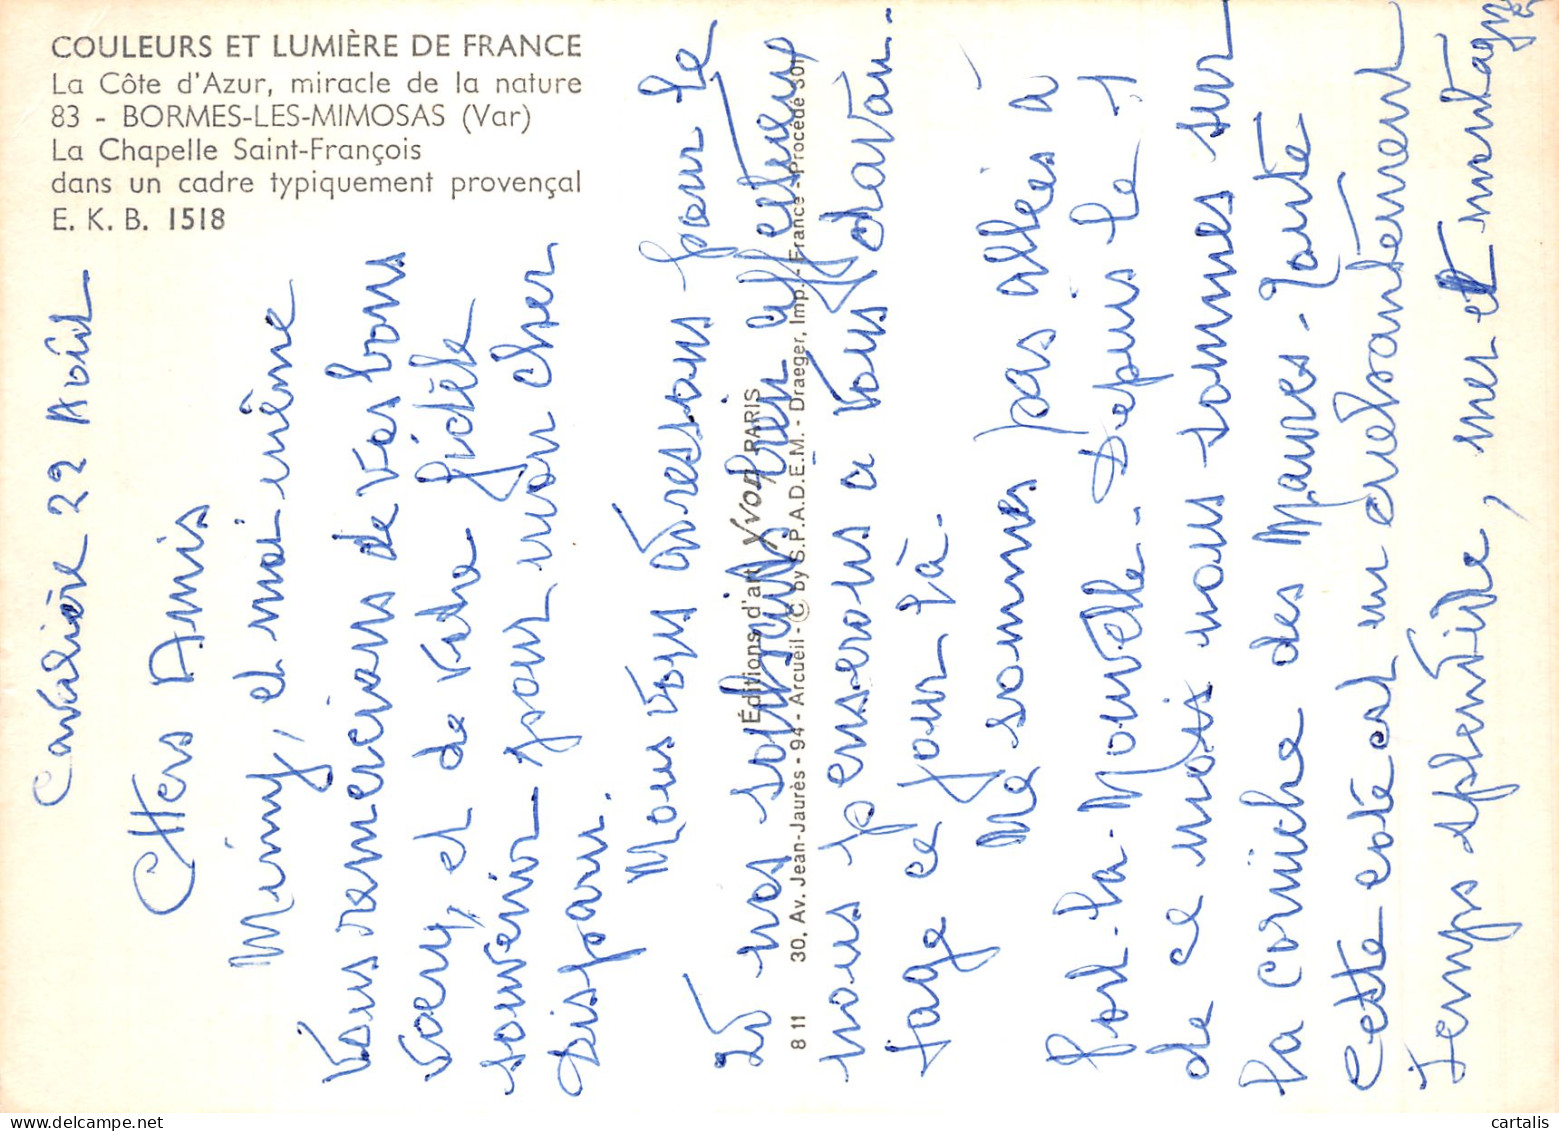 COULEURS ET LUMIÈRE DE FRANCE
La Côte d'Azur, miracle de la nature
83 - BORMES-LES-MIMOSAS (Var)
La Chapelle Saint-François
dans un cadre typiquement provençal
E. K. B. 1518
Cavalière 22 Août
Chers Amis
Mimy, et moi-même
Vous remercions de vos bons
voeux, et de votre fidèle
souvenir pour mon cher
disparu.
Nous vous adressons pour le
20 nos souhaits bien affectueux
nous penserons à vous davan-
tage ce jour-là.
Ne sommes pas allées à
Port-la-Nouvelle. Depuis le 1
de ce mois nous sommes sur
la corniche des Maures - Toute
cette côte est un enchantement
Temps splendide, mer et montagne
Éditions d'art Yvon PARIS
8 11 30, Av. Jean-Jaurès - 94 - Arcueil - © by S.P.A.D.E.M. - Draeger, Imp. - France - Procédé Sor
cartalis